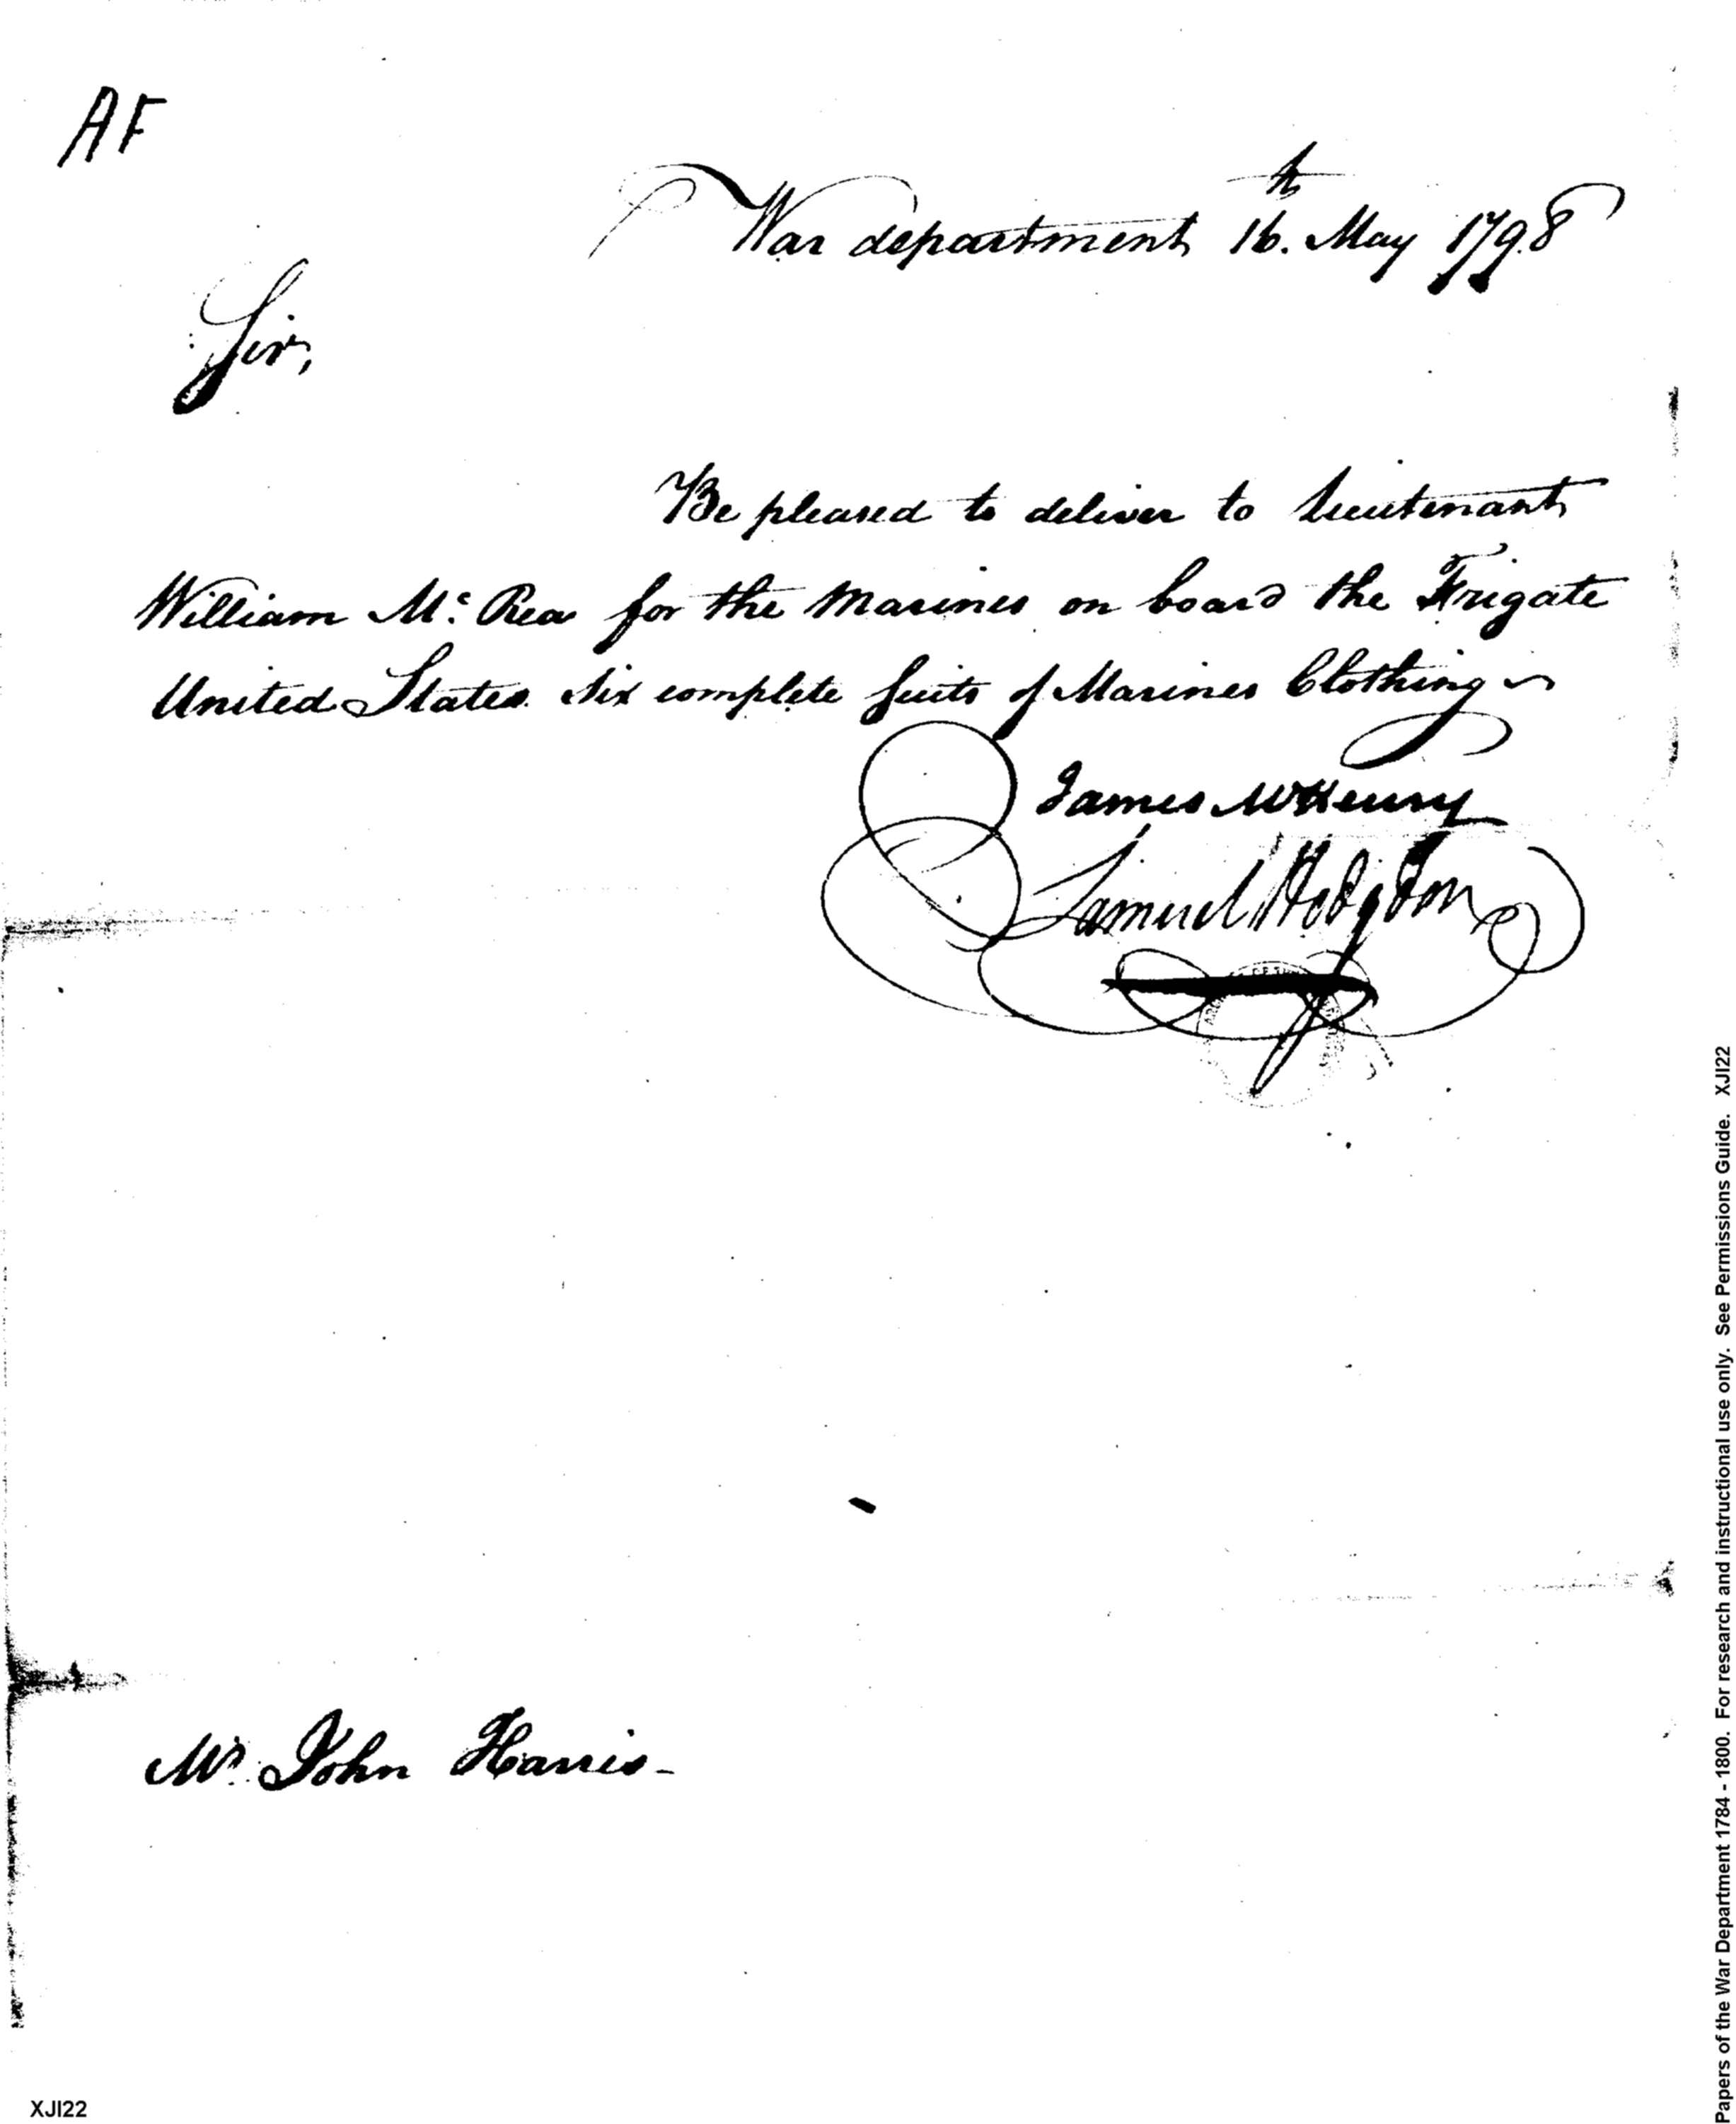 AF
War department 16th. May 1798
Sir,
Be pleased to deliver to Lieutenant
William Mc. Rea for the Marines on board the Frigate
United States six complete suits of Marines Clothing
James McHenry
Samuel Hodgdon
Mr. John Harris-
XJI22
Papers of the War Department 1784 - 1800. For research and instructional use only. See Permissions Guide. XJI22